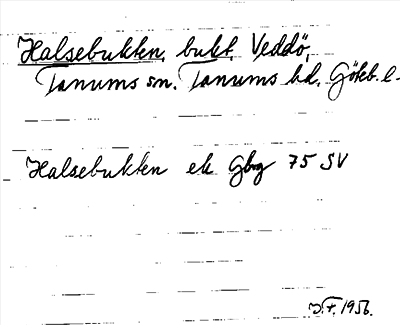 Halsebukten, bukt, Veddö,
Tanums sn. Tanums hd. Göteb. l.
Halsebukten ek Gbg 75 SV
1956.